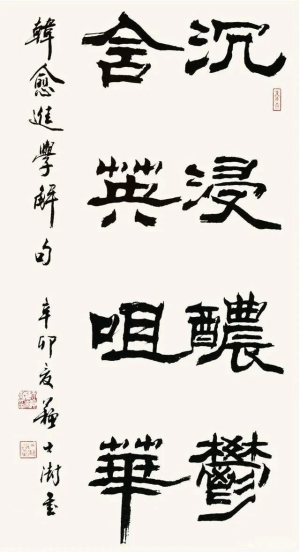 沉浸醲鬱
含英咀華
韓愈進學解句 辛卯夏 蘇士澍書